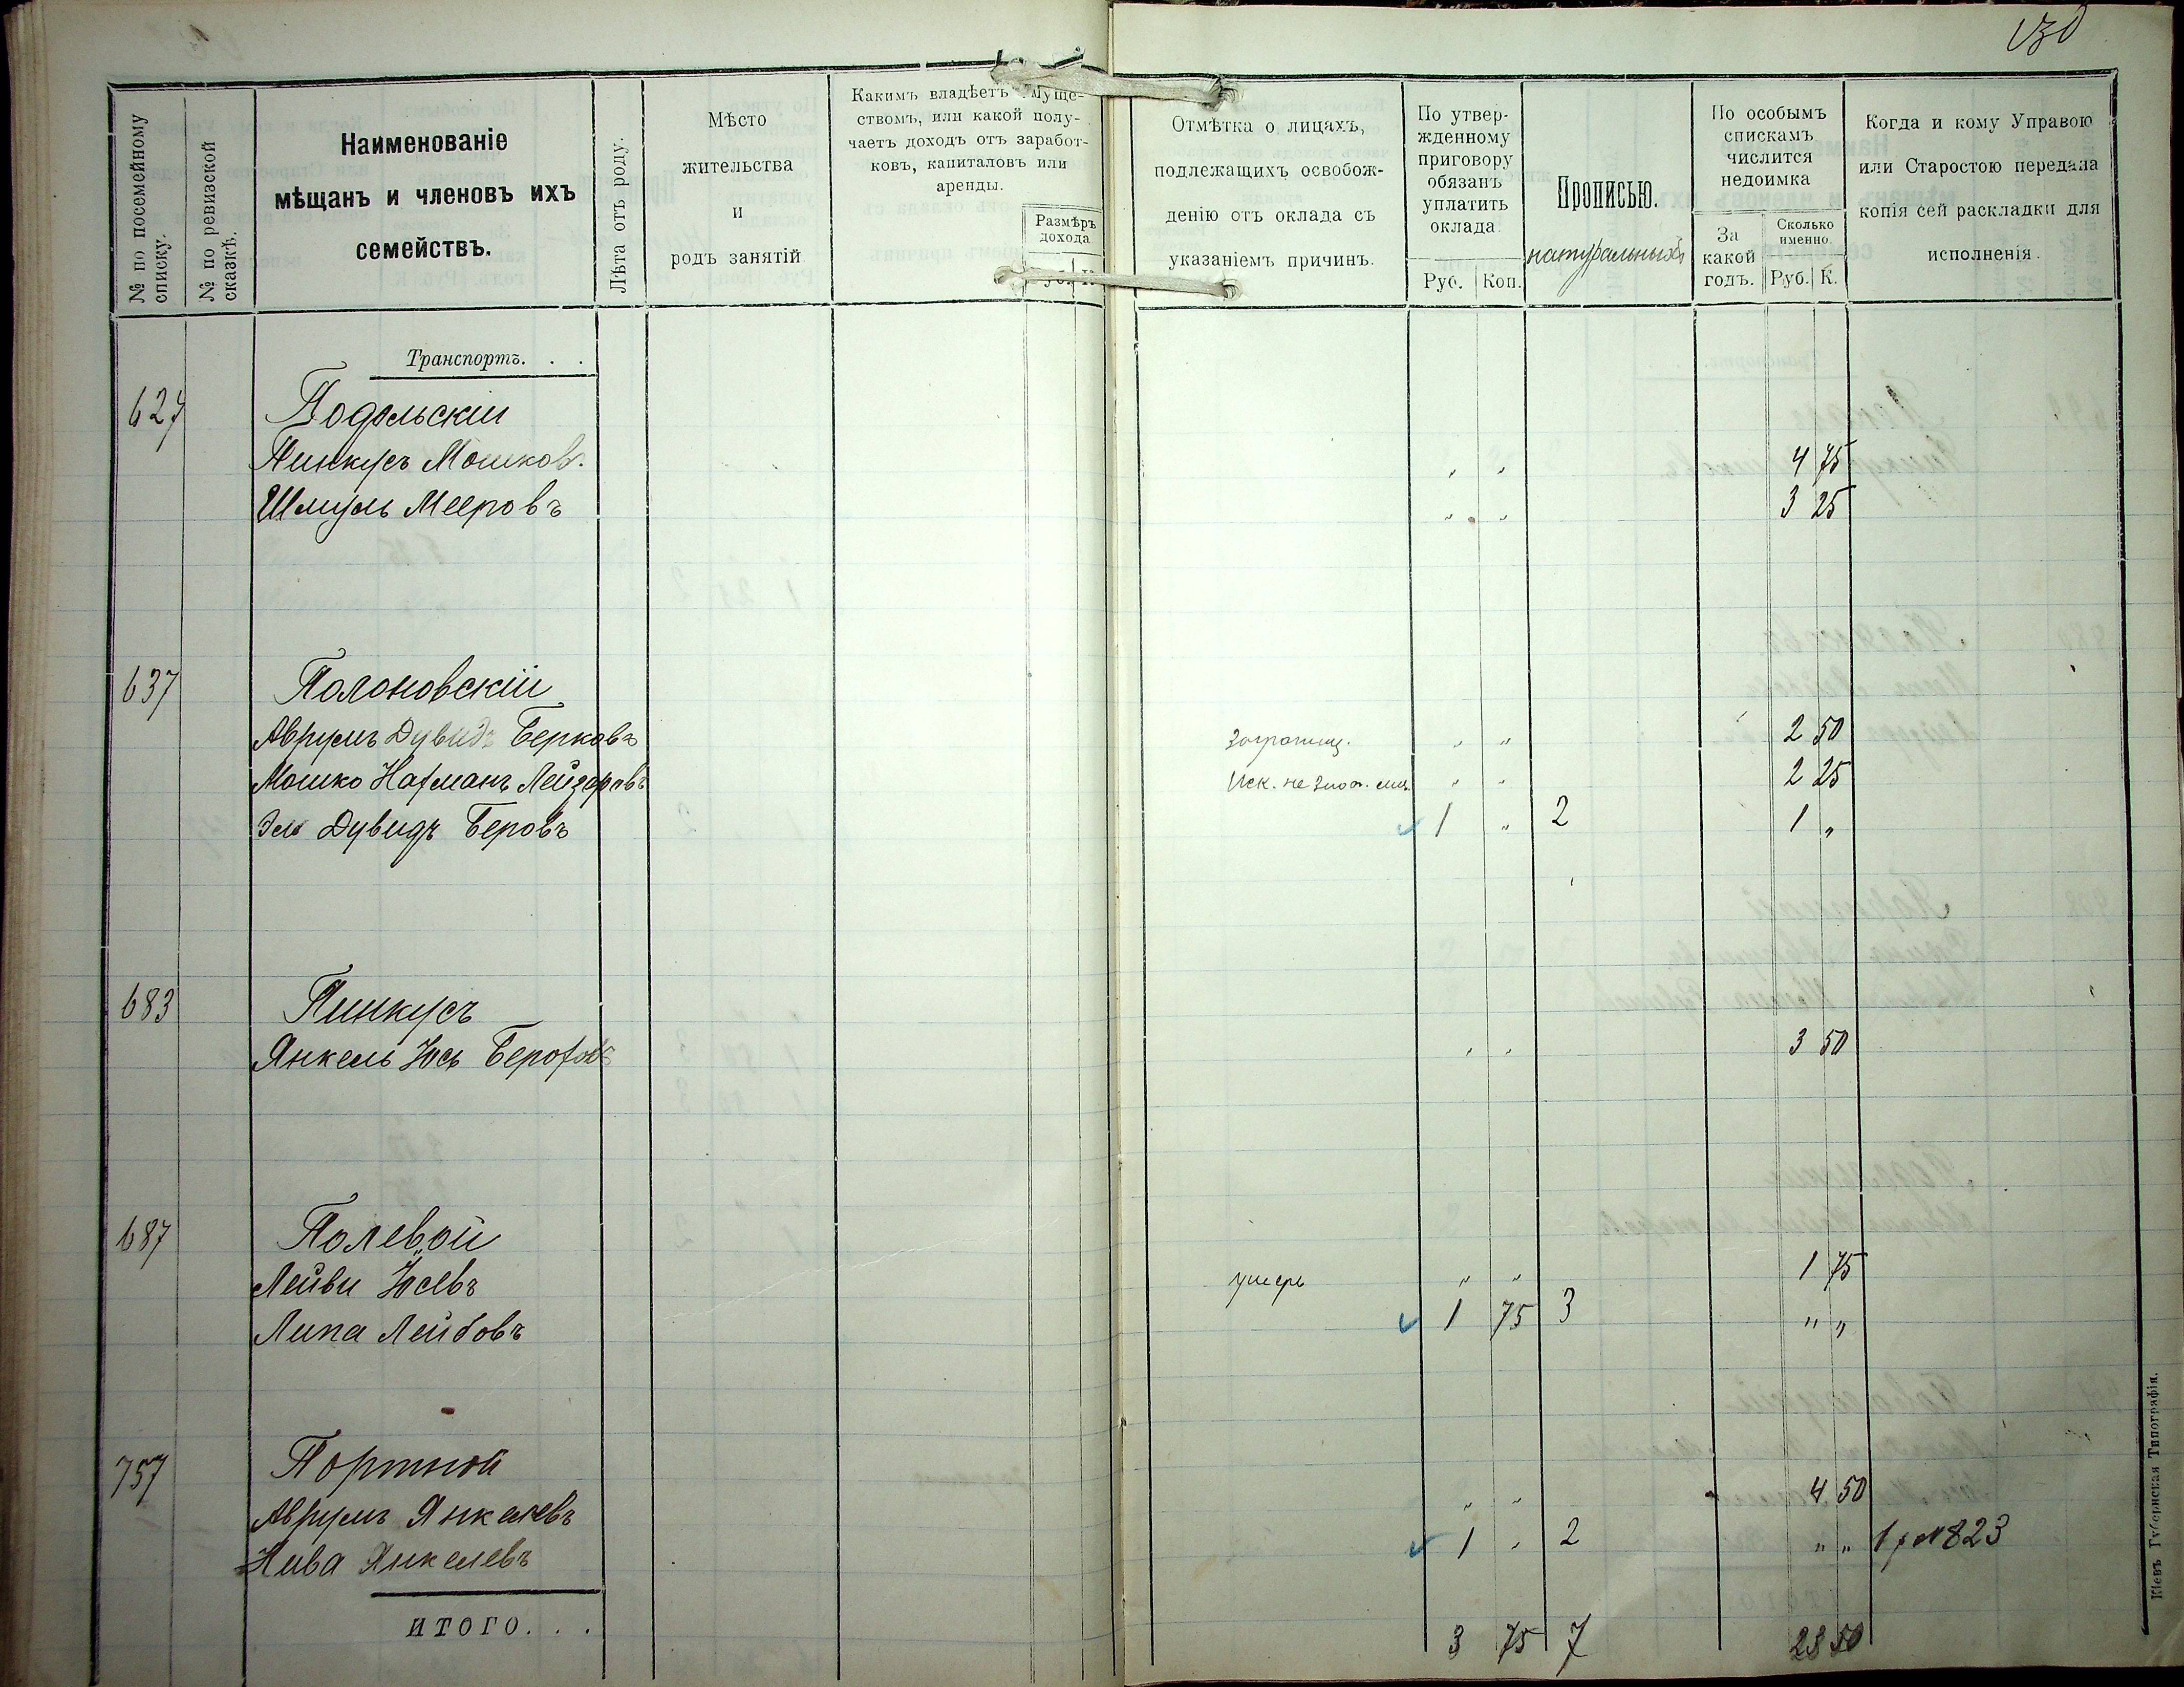 130
№ по посемейному списку.
№ по ревизской сказкѣ.
Наименованіе
мѣщанъ и членовъ ихъ
семействъ.
Лѣта отъ роду.
Мѣсто
жительства
и
родъ занятій
Какимъ владѣетъ муще-
ствомъ, или какой полу-
чаетъ доходъ отъ заработ-
ковъ, капиталовъ или
аренды.
Размѣръ
дохода
Отмѣтка о лицахъ,
подлежащихъ освобож-
денію отъ оклада съ
указаніемъ причинъ.
По утвер-
жденному
приговору
обязанъ
уплатить
оклада
Руб. Коп.
Прописью.
натуральныхъ
По особымъ
спискамъ
числится
недоимка
За
какой
годъ.
Сколько
именно.
Руб. К.
Когда и кому Управою
или Старостою передана
копія сей раскладки для
исполненія.
Транспортъ. . .
627 Подольскій
Пинкусъ Мошков. " " 4 75
Шмуль Мееровъ " " 3 25
637 Полоновскій
Аврумъ Дувидъ Берковъ Заграниц. " " 2 50
Мошко Нахманъ Лейзеровъ Иск. не " " 2 25
Эль Дувидъ Беровъ 1 " 2 1 "
683 Пинкусъ
Янкель Юсь " " 3 50
687 Полевой
Лейви Юсевъ умеръ " " 1 75
Липа Лейбовъ 1 75 3 " "
757 Портной
Аврумъ Янкелевъ " " 4 50
Янкелевъ 1 " 2 " " 1 р №823
ИТОГО. . . 3 75 7 23 50
Кіевъ Губернская Типографія.